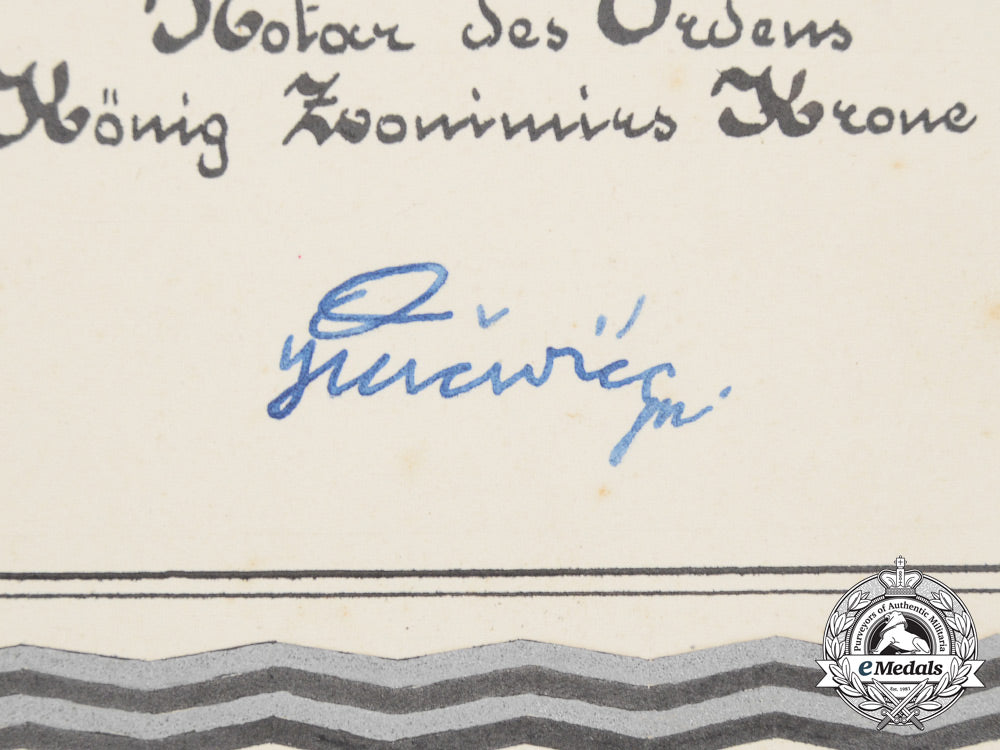 Notar des Ordens
König Zvonimirs Krone
Purveyors of Authentic Militaria
eMedals
Est. 1983